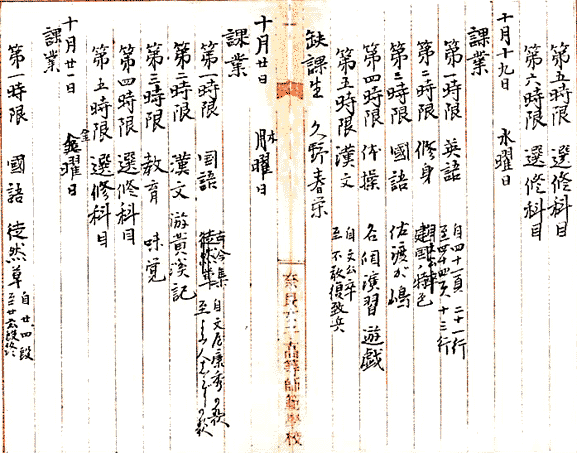 第五時限 選修科目
第六時限 選修科目
十月十九日 水曜日
課業
第一時限 英語 自四十一頁二十一行
至四十四頁十三行
第二時限 修身 建国ノ特色
第三時限 國語 佐渡が嶋
第四時限 体操 各個演習 遊戯
第五時限 漢文 自文公卒
至不敢復致兵
欠課生 久野春栄
十月廿日 木曜日
課業
第一時限 国語 古今集 自文屋康秀の歌
徒然草 至
第二時限 漢文 游黄溪記
第三時限 教育 味覚
第四時限 選修科目
第五時限 選修科目
十月廿一日 金曜日
課業
第一時限 國語 徒然草 自廿四段
至廿六段終
高等師範學校